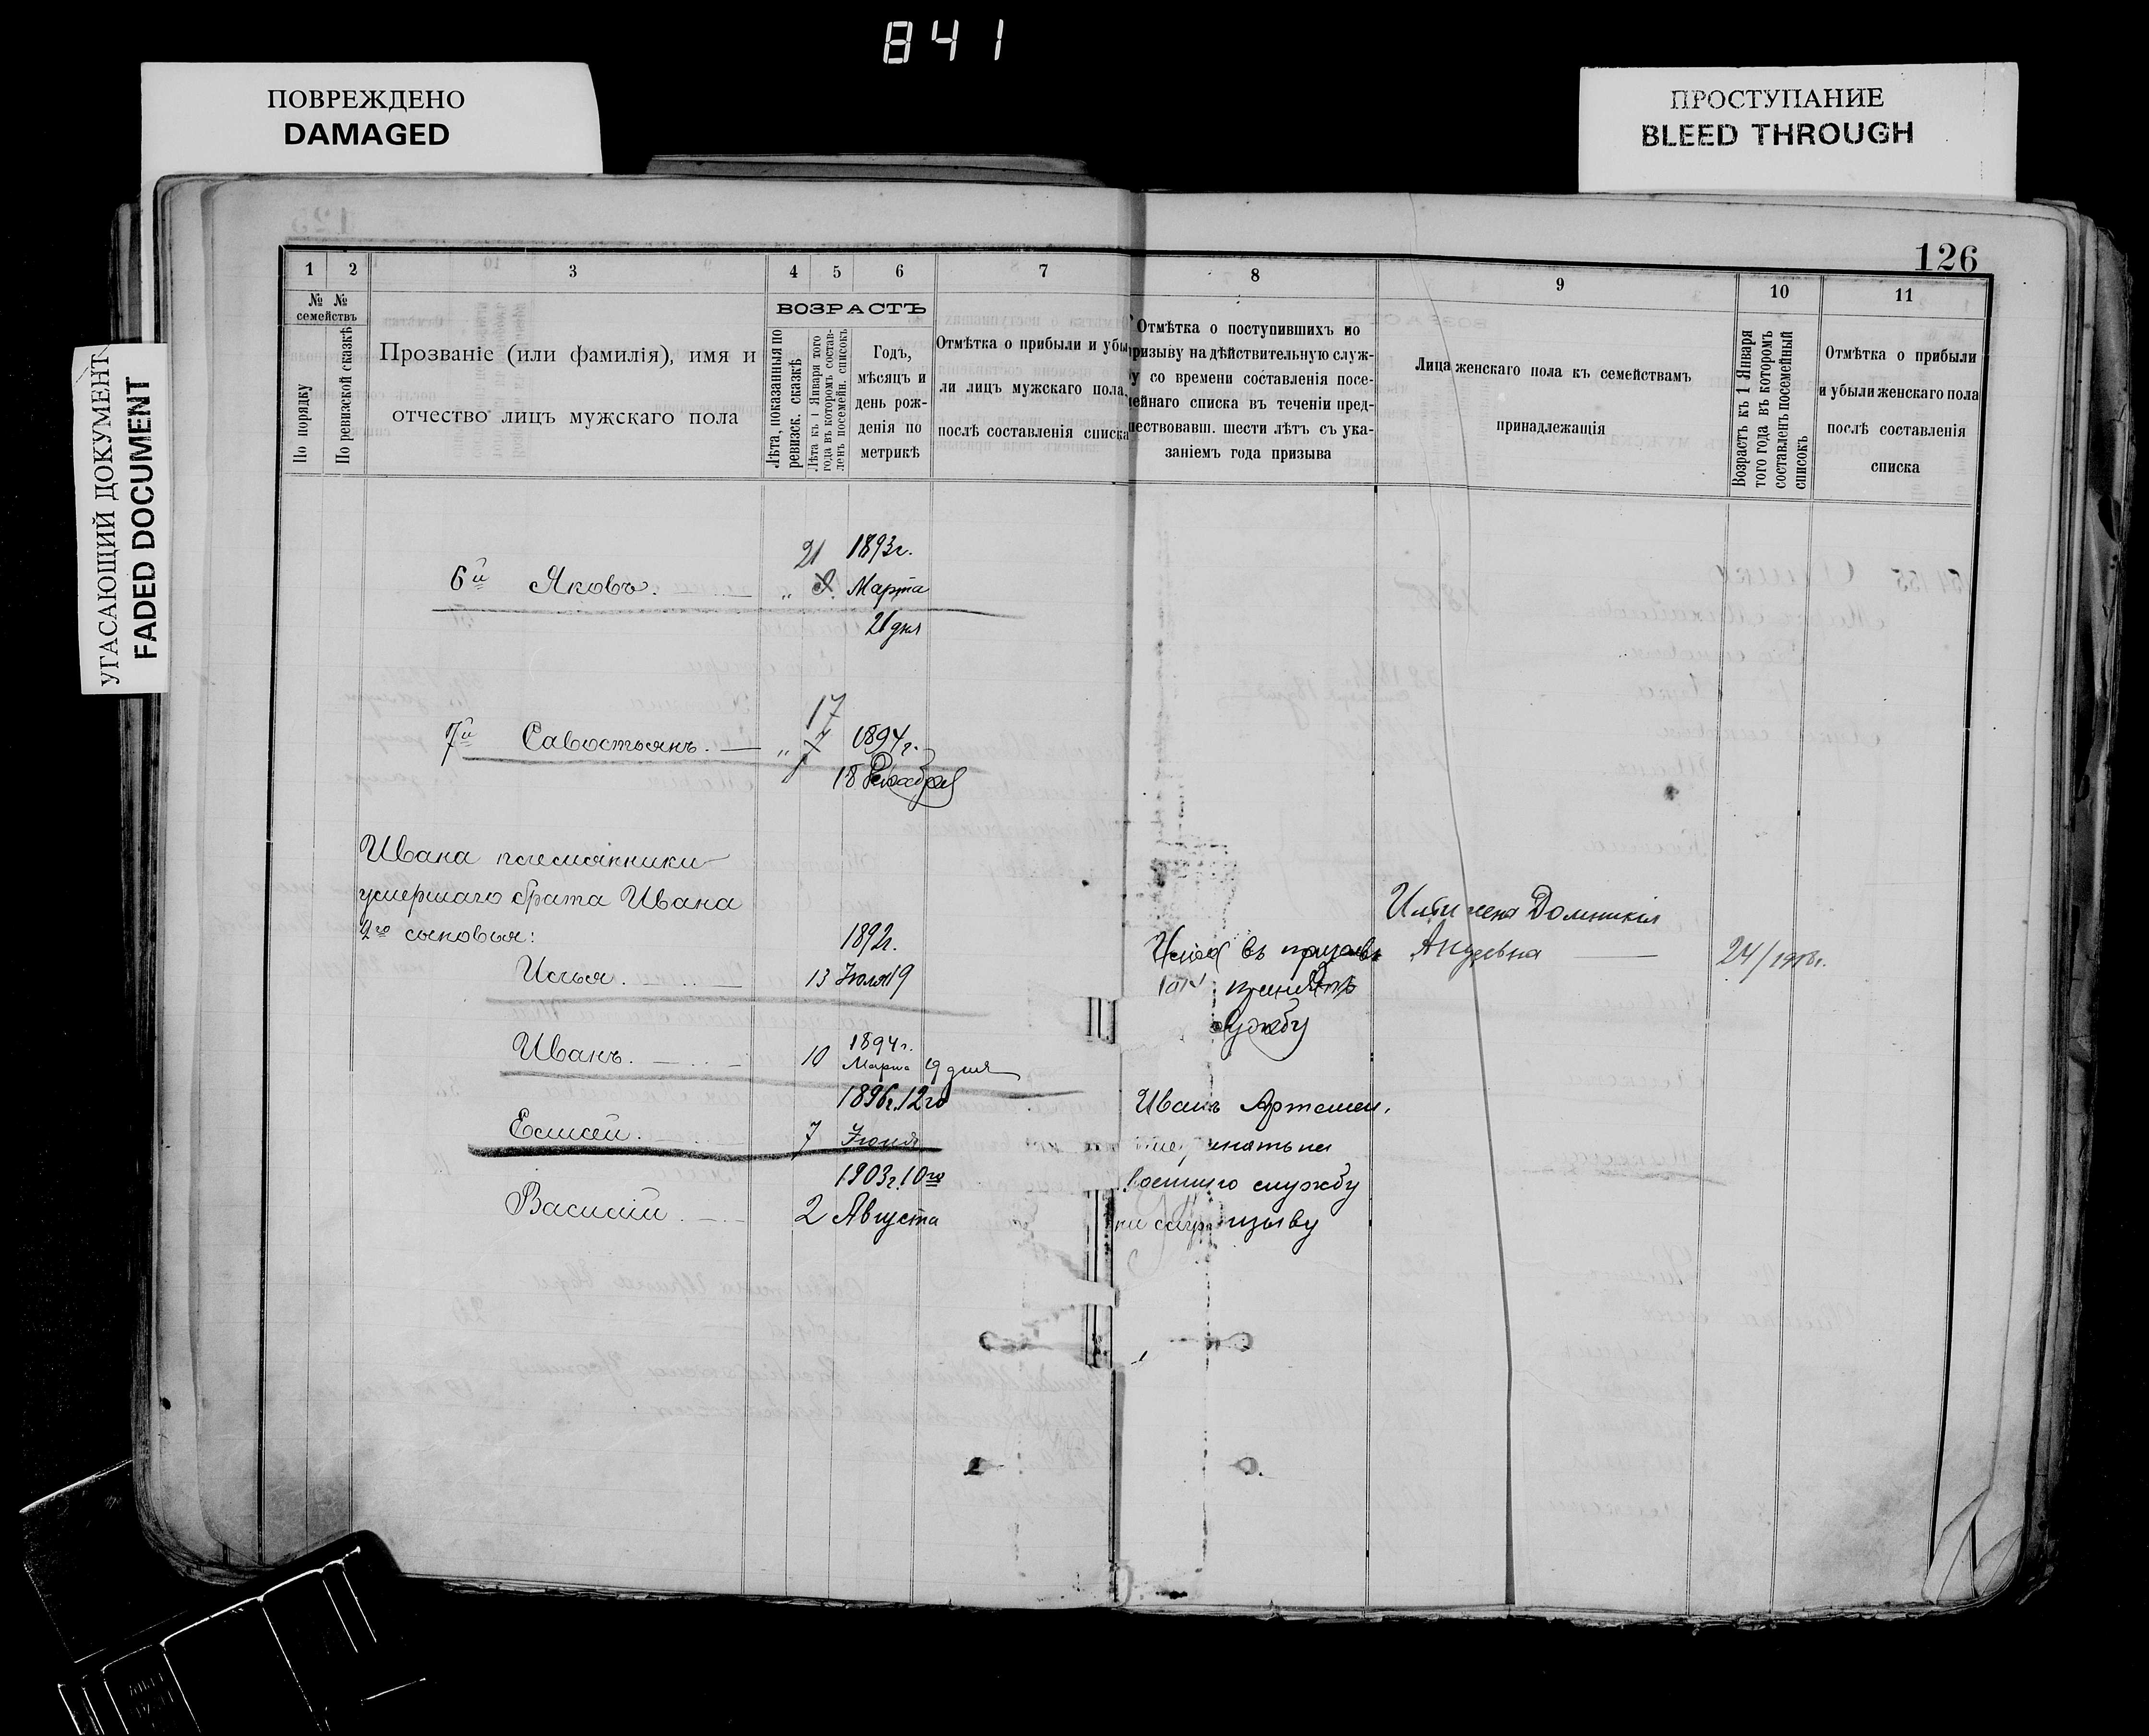 841
ПОВРЕЖДЕНО
DAMAGED
ПРОСТУПАНИЕ
BLEED THROUGH
УГАСАЮЩИЙ ДОКУМЕНТ
FADED DOCUMENT
126
1 2 3 4 5 6 7 8 9 10 11
№ № семействъ
По порядку
По ревизской сказкѣ
Прозваніе (или фамилія), имя и
отчество лицъ мужскаго пола
ВОЗРАСТЪ
Лѣта, показанныя по
ревизск. сказкѣ
Лѣта къ 1 Января того
года въ которомъ состав-
ленъ посемейн. списокъ
Годъ,
мѣсяцъ и
день рож-
денія по
метрикѣ
Отмѣтка о прибыли и убы
ли лицъ мужскаго пола,
послѣ составленія списка
Отмѣтка о поступившихъ по
призыву на дѣйствительную служ-
у со времени составленія посе-
ейнаго списка въ теченіи пред-
шествовавш. шести лѣтъ съ ука-
заніемъ года призыва
Лица женскаго пола къ семействамъ
принадлежащія
Возрастъ къ 1 Января
того года въ которомъ
составленъ посемейный
списокъ
Отмѣтка о прибыли
и убыли женскаго пола
послѣ составленія
списка
21 1893г.
6й Яковъ. „ Марта
21 дня
17
7й Савостьянъ. — „ 7 1894 г.
18 Декабря
Ивана племянники
умершаго брата Ивана
2го сыновья:
1892г.
Илья. 13 Іюля 19
1894г.
Иванъ. 10 Марта 9 дня
1896г. 12го
Елисей. 7 Іюня
1903г. 10го
Василій. 2 Августа
Илья въ
службу
Иванъ Артемьев.
на
военную службу
жена Домникія
24/